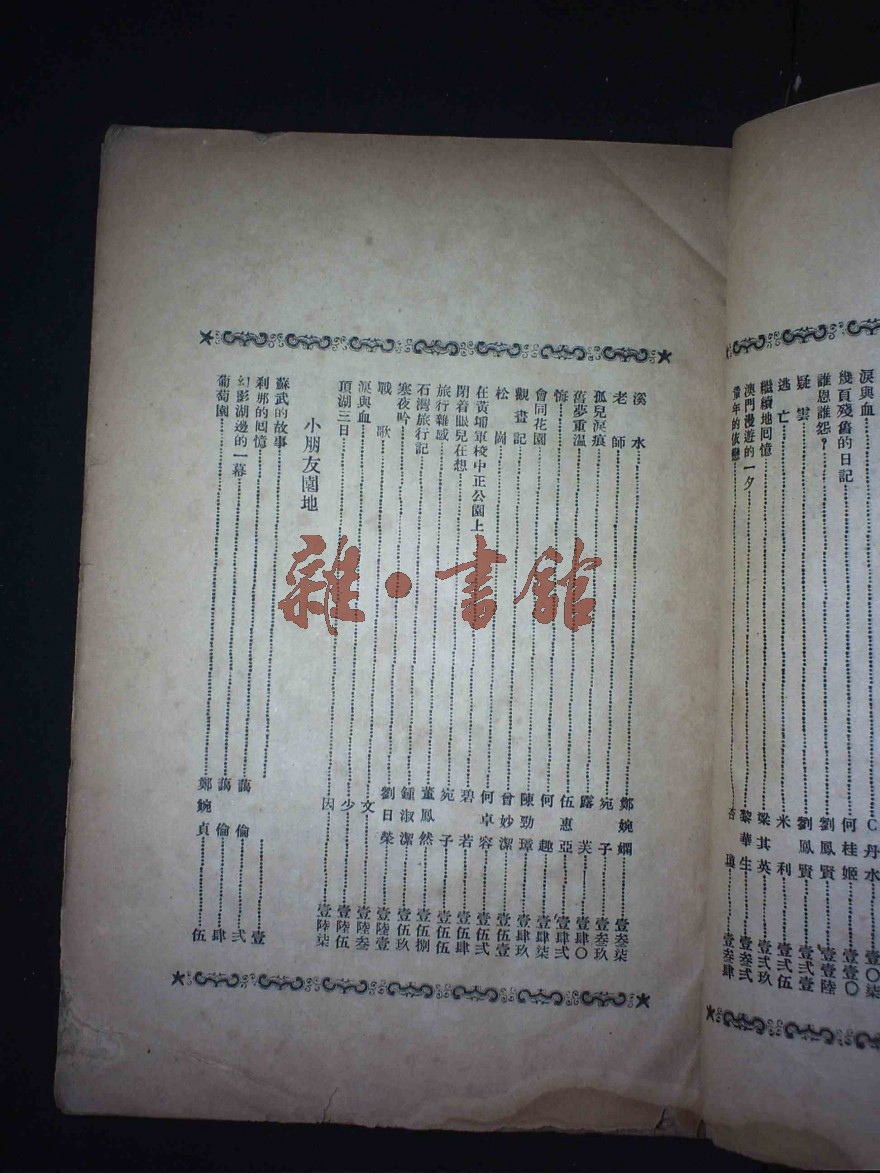 淚與血 C 丹水 壹〇柒
幾頁殘舊的日記 何桂姬 壹壹〇
誰恩誰怨？ 劉鳳賢 壹壹陸
疑雲 劉鳳賢 壹弍壹
逃亡 米利 壹弍伍
繼續地回憶 梁其英 壹弍玖
澳門漫遊的一夕 黎華生 壹叁弍
童年的依戀 杏 壹叁肆
溪水 鄭婉嫻 壹叁柒
老師 宛子 壹叁玖
孤兒淚痕 露芙 壹肆〇
舊夢重溫 伍惠亞 壹肆弍
悔 何趣 壹肆柒
會同花園 陳勁璋 壹肆玖
觀畫記 曾妙潔 壹伍壹
松崗 何卓容 壹伍弍
在黃埔軍校中正公園上
閉着眼兒在想 碧若 壹伍肆
旅行雜感 宛子 壹伍伍
石灣旅行記 董鳳然 壹伍捌
寒夜吟 鍾淑潔 壹伍玖
戰歌 劉日榮 壹陸壹
淚與血 文 壹陸叁
頂湖三日 少 壹陸伍
因 壹陸柒
小朋友園地
蘇武的故事 壹
剎那的回憶 藹倫 弍
幻影湖邊的一幕 藹倫 肆
葡萄園 鄭婉貞 伍
雜·書館